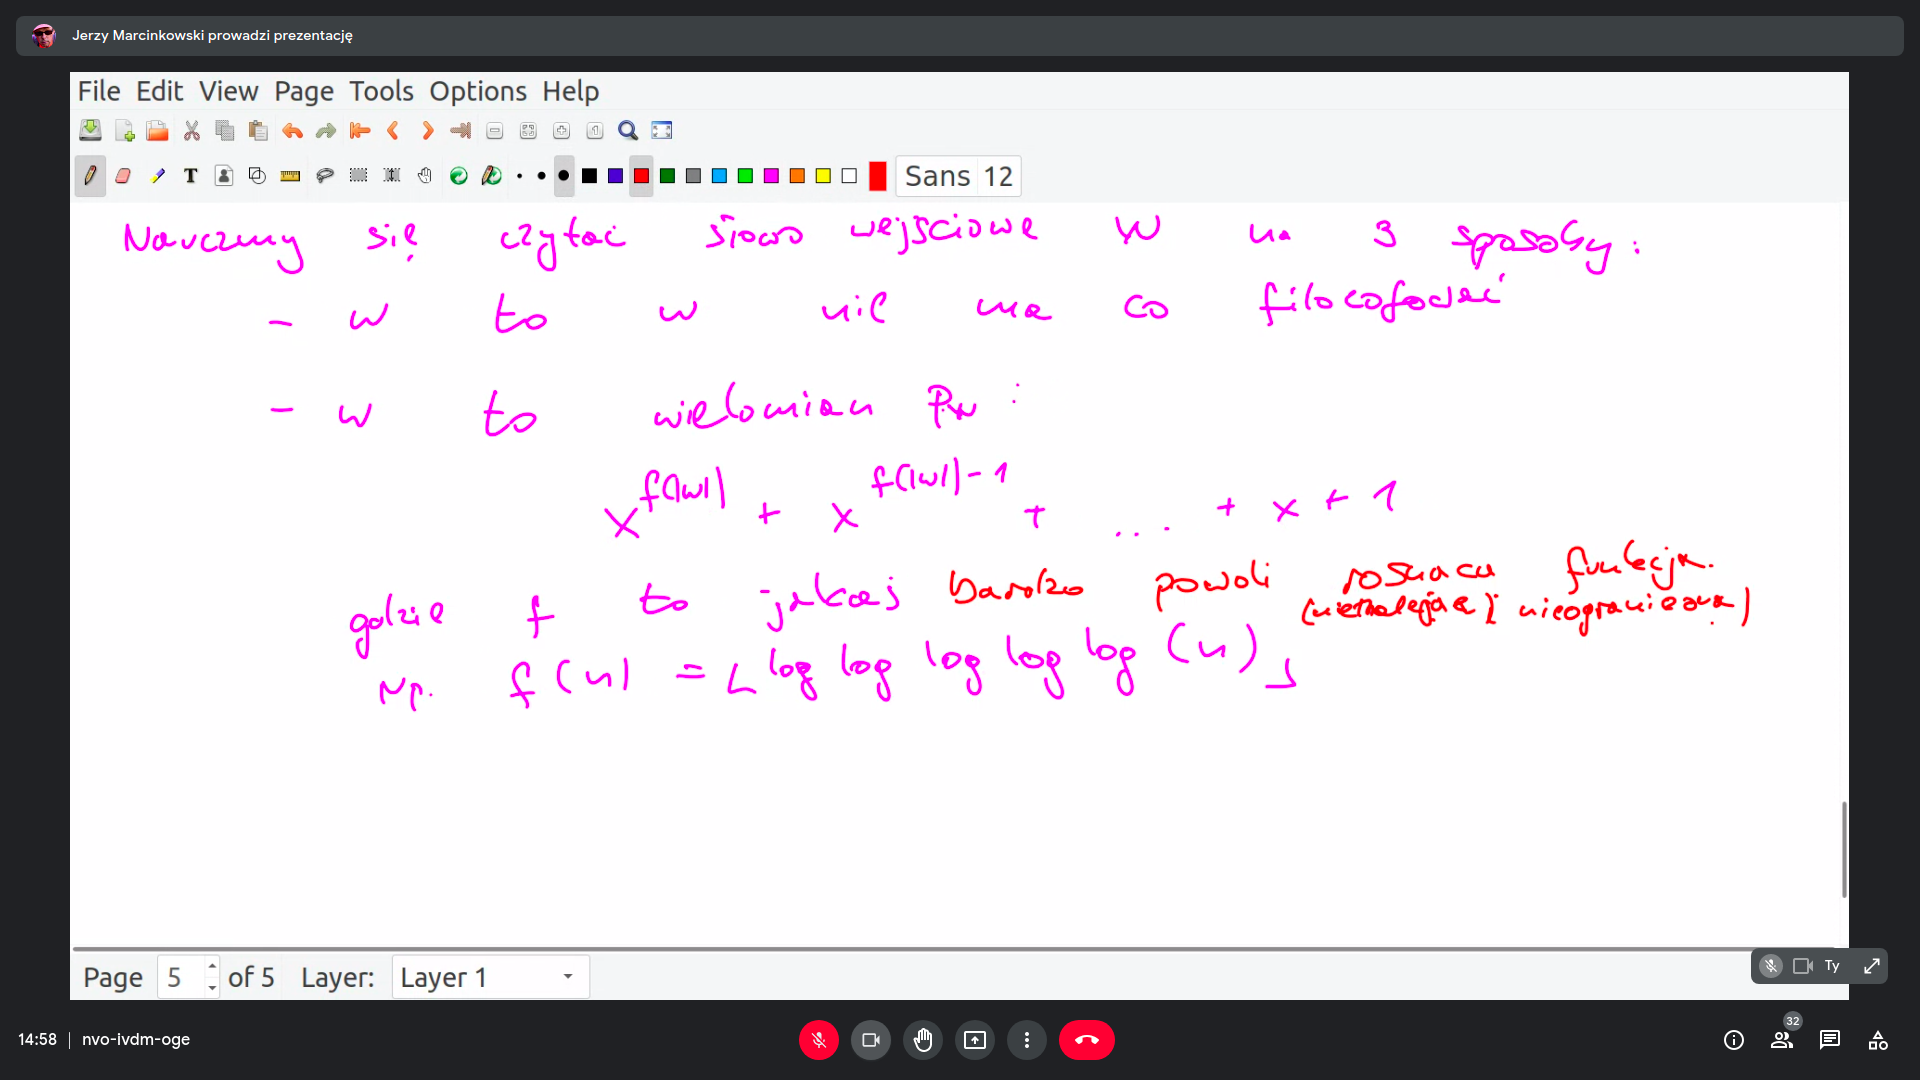 Jerzy Marcinkowski prowadzi prezentację
File Edit View Page Tools Options Help
T Sans 12
Nauczmy się czytać słowo wejściowe w na 3 sposoby:
- w to w nie ma co filozofować
- w to wielomian Pw:
x^f(|w|) + x^f(|w|)-1 + ... + x + 1
gdzie f to jakaś bardzo powoli rosnąca funkcja.
(niemalejąca i nieograniczona)
Np. f(n) = ⌊log log log log log (n)⌋
Page 5 of 5 Layer: Layer 1
Ty
14:58 | nvo-ivdm-oge
32